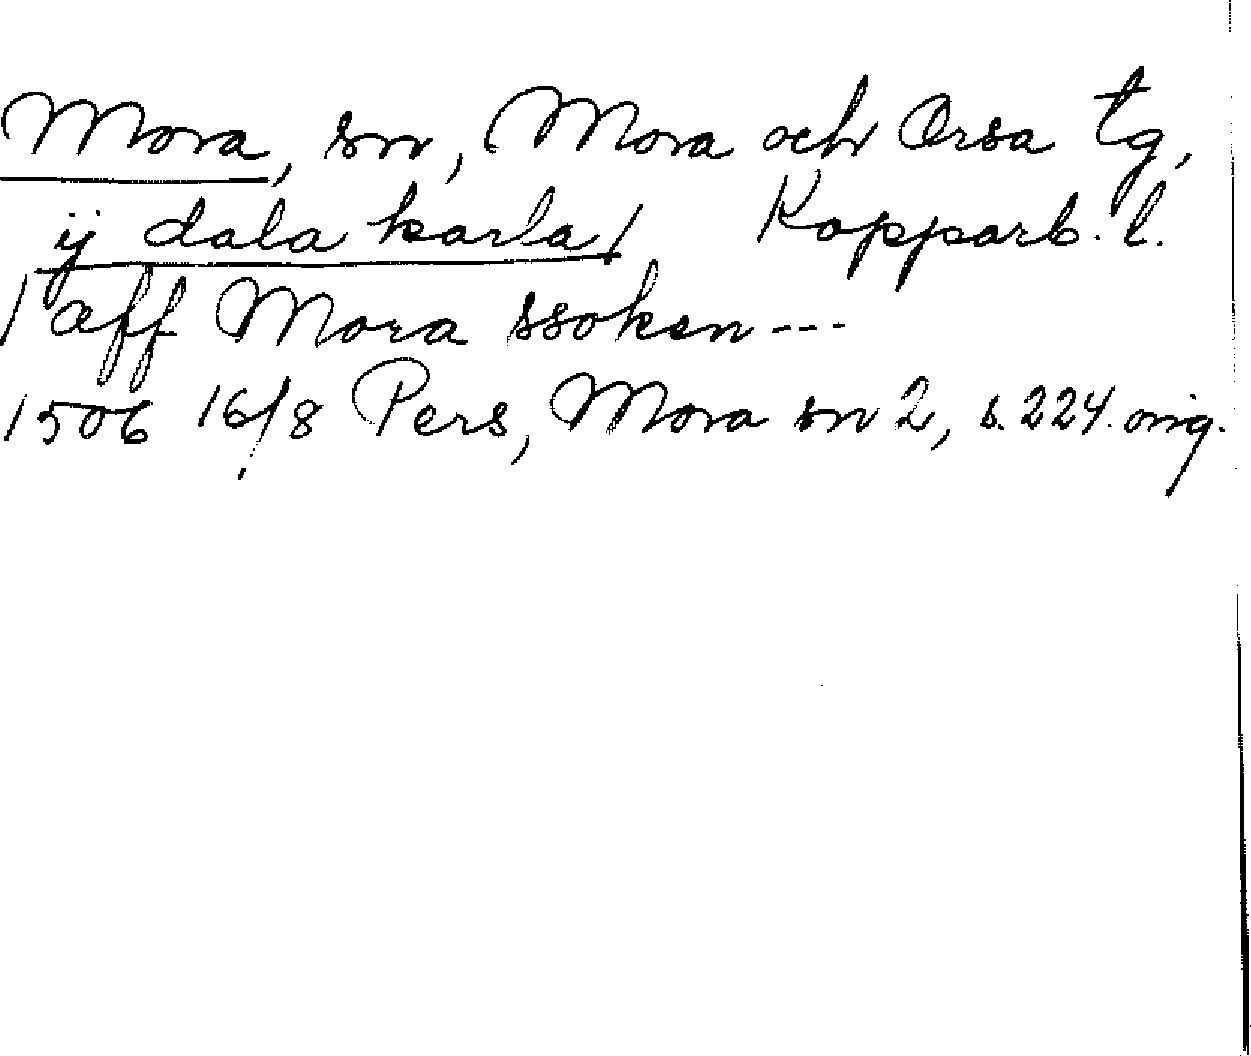 Mora, sn, Mora och Orsa tg,
ij dala karla/ Kopparb. l.
/ aff Mora ssoken---
1506 16/8 Pers, Mora sn 2, s. 224. orig.